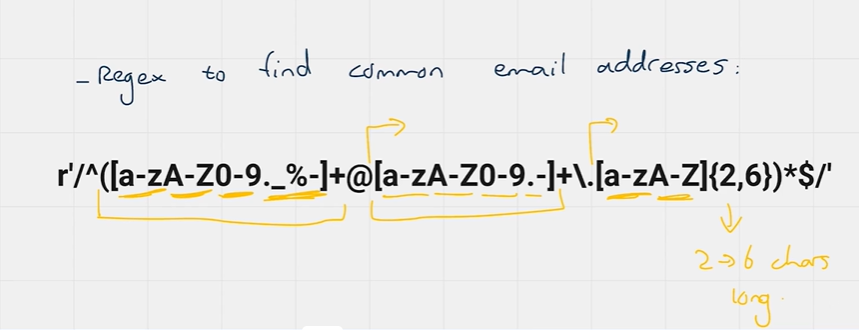 - Regex to find common email addresses:
r'/^([a-zA-Z0-9._%-]+@[a-zA-Z0-9.-]+\.[a-zA-Z]{2,6})*$/'
2→6 chars
long.